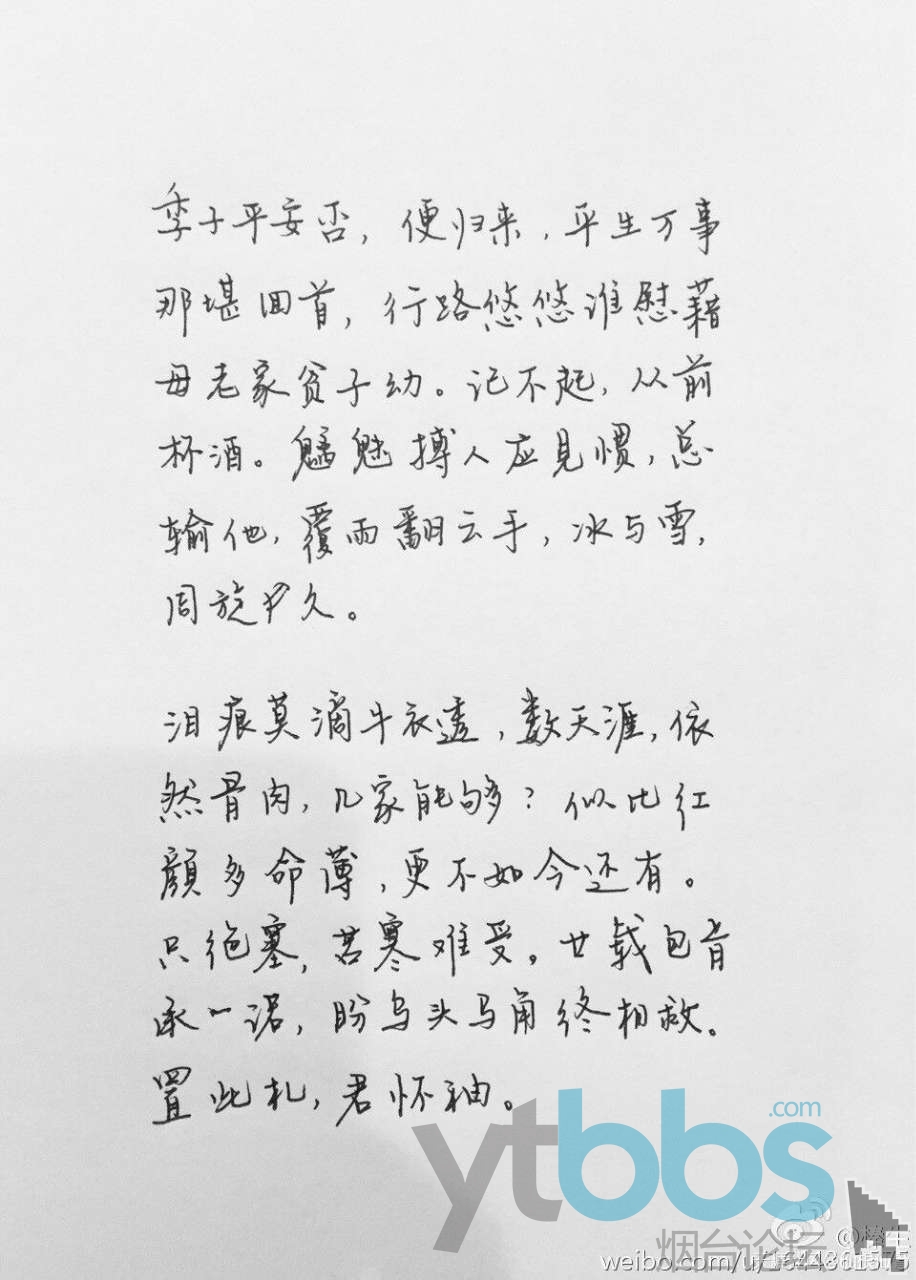 季子平安否，便归来，平生万事
那堪回首，行路悠悠谁慰藉
母老家贫子幼。记不起，从前
杯酒。魑魅搏人应见惯，总
输他，覆雨翻云手，冰与雪，
周旋久。
泪痕莫滴牛衣透，数天涯，依
然骨肉，几家能够？似比红
顏多命薄，更不如今还有。
只绝塞，苦寒难受。廿载包胥
承一诺，盼乌头马角终相救。
置此札，君怀袖。
ytbbs.com
烟台论坛
weibo.com/u/